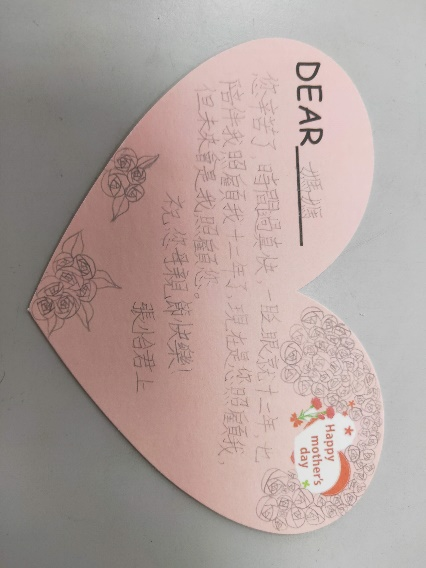 DEAR 媽媽
您辛苦了，時間過真快，一眨眼就十二年，
陪伴我照顧我十二年了，現在是您照顧我，
但未來會是我照顧您。
祝您母親節快樂!
怡君上
Happy
mother's
day